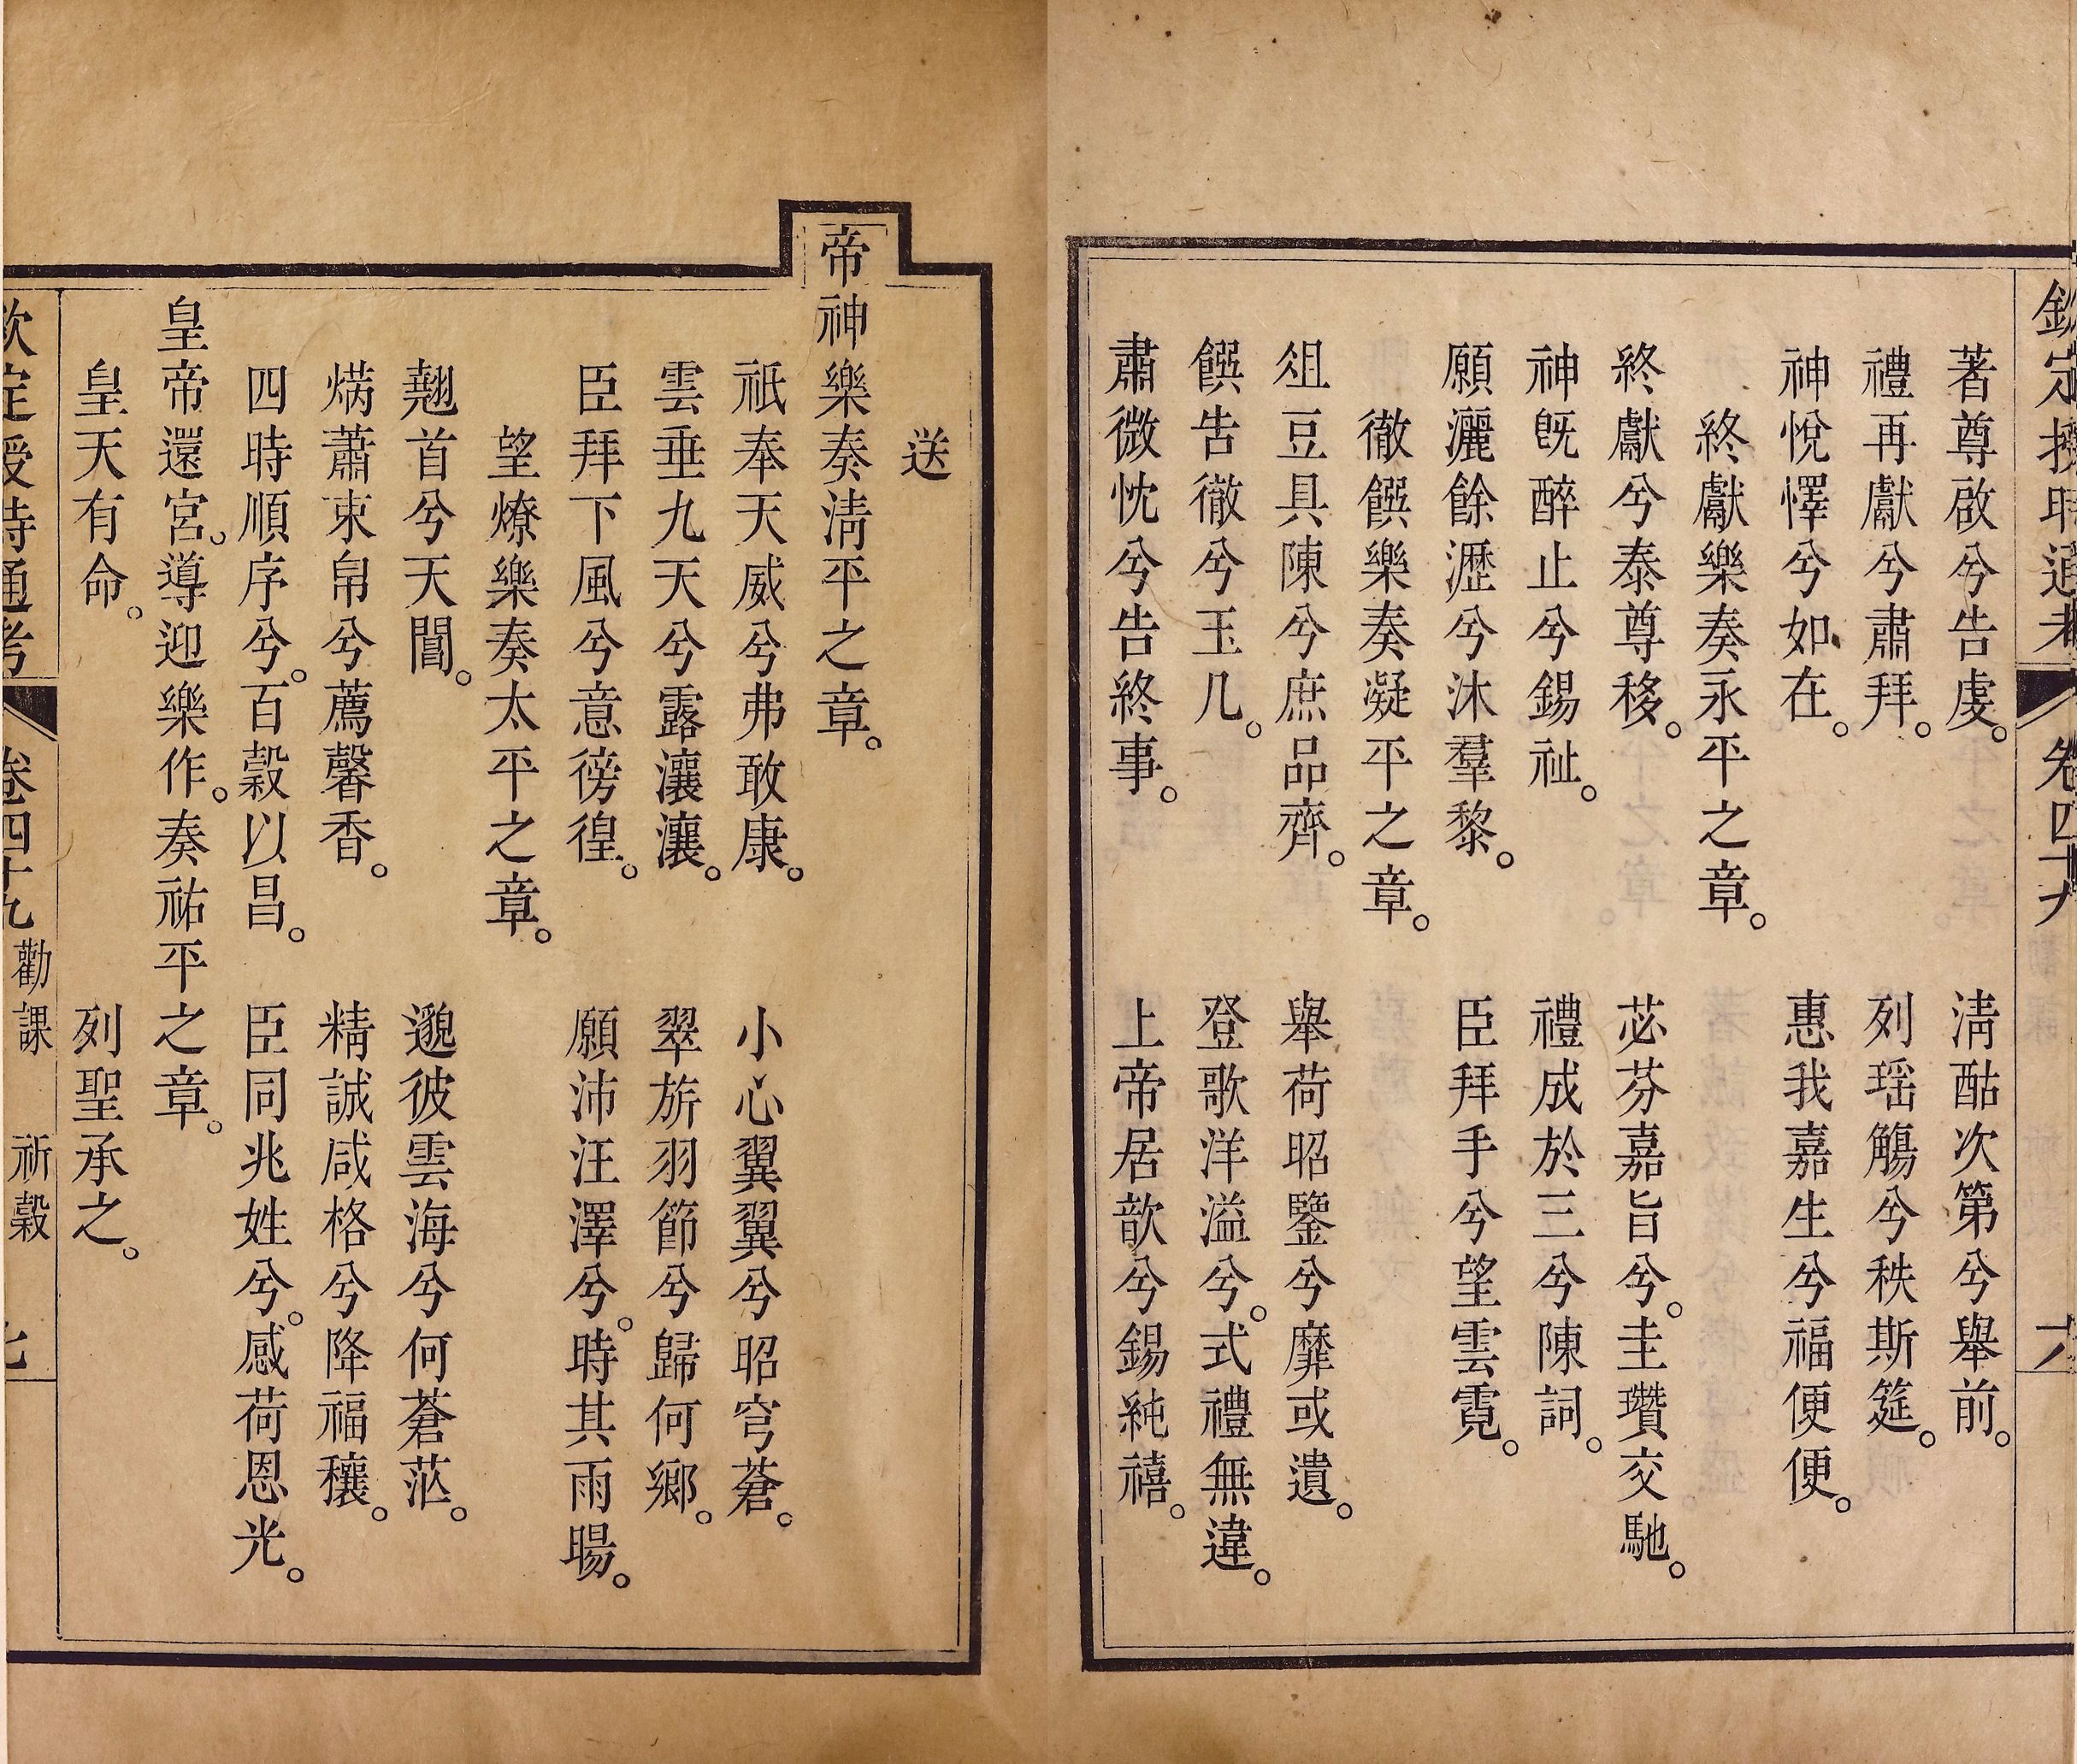 欽定授時通考 卷四十九 勸課 六
著尊啟兮告虔。 淸酤次第兮舉前。
禮再獻兮肅拜。 列瑶觴兮秩斯筵。
神悅懌兮如在。 惠我嘉生兮福便便。
終獻樂奏永平之章。
終獻兮泰尊移。 苾芬嘉旨兮。圭瓚交馳。
神旣醉止兮錫祉。 禮成於三兮陳詞。
願灑餘瀝兮沐羣黎。 臣拜手兮望雲霓。
徹饌樂奏凝平之章。
俎豆具陳兮庶品齊。 舉荷昭鑒兮靡或遺。
饌告徹兮玉几。 登歌洋溢兮。式禮無違。
肅微忱兮告終事。 上帝居歆兮錫純禧。
送
帝神樂奏淸平之章。
祇奉天威兮弗敢康。 小心翼翼兮昭穹蒼。
雲垂九天兮露瀼瀼。 翠旂羽節兮歸何鄉。
臣拜下風兮意徬徨。 願沛汪澤兮。時其雨暘。
望燎樂奏太平之章。
翹首兮天閶。 邈彼雲海兮何蒼茫。
焫蕭束帛兮薦馨香。 精誠咸格兮降福穰。
四時順序兮。百穀以昌。 臣同兆姓兮。感荷恩光。
皇帝還宮。導迎樂作。奏祐平之章。
皇天有命。 列聖承之。
欽定授時通考 卷四十九 勸課 祈穀 七